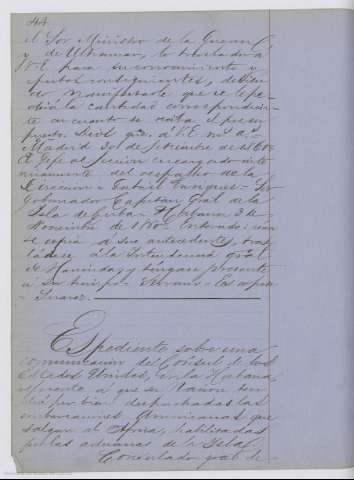 44
el Sor Ministro de la Guerra
y de Ultramar, lo traslado á
V.E. para su conocimiento y
efectos consiguientes, debien
do manifestarle que se espe
dirá la cantidad correspondien
te en cuanto se reciba el presu
puesto. Dios gue. á V.E. ms. as.
Madrid 30 de Setiembre de 1860
El Jefe de Seccion encargado inte
rinamente del despacho de la
Direccion = Gabriel Enriquez = Sor
Gobernador Capitan Gral de la
Isla de Cuba = Habana 3 de
Noviembre de 1860 = Enterado: sáquen
se copia á sus antecedentes, tras
ládese á la Intendencia gral
de Hacienda, y téngase presente
Serrano = Es copia =
Suarez.
Espediente sobre una
comunicacion del Consul de los
Estados Unidos, en la Habana,
referente á que su Nacion ten
drá por bien despachadas las
embarcaciones Americanas que
salgan al Africa, habilitadas
por las aduanas de la Isla.
Consulado gral de